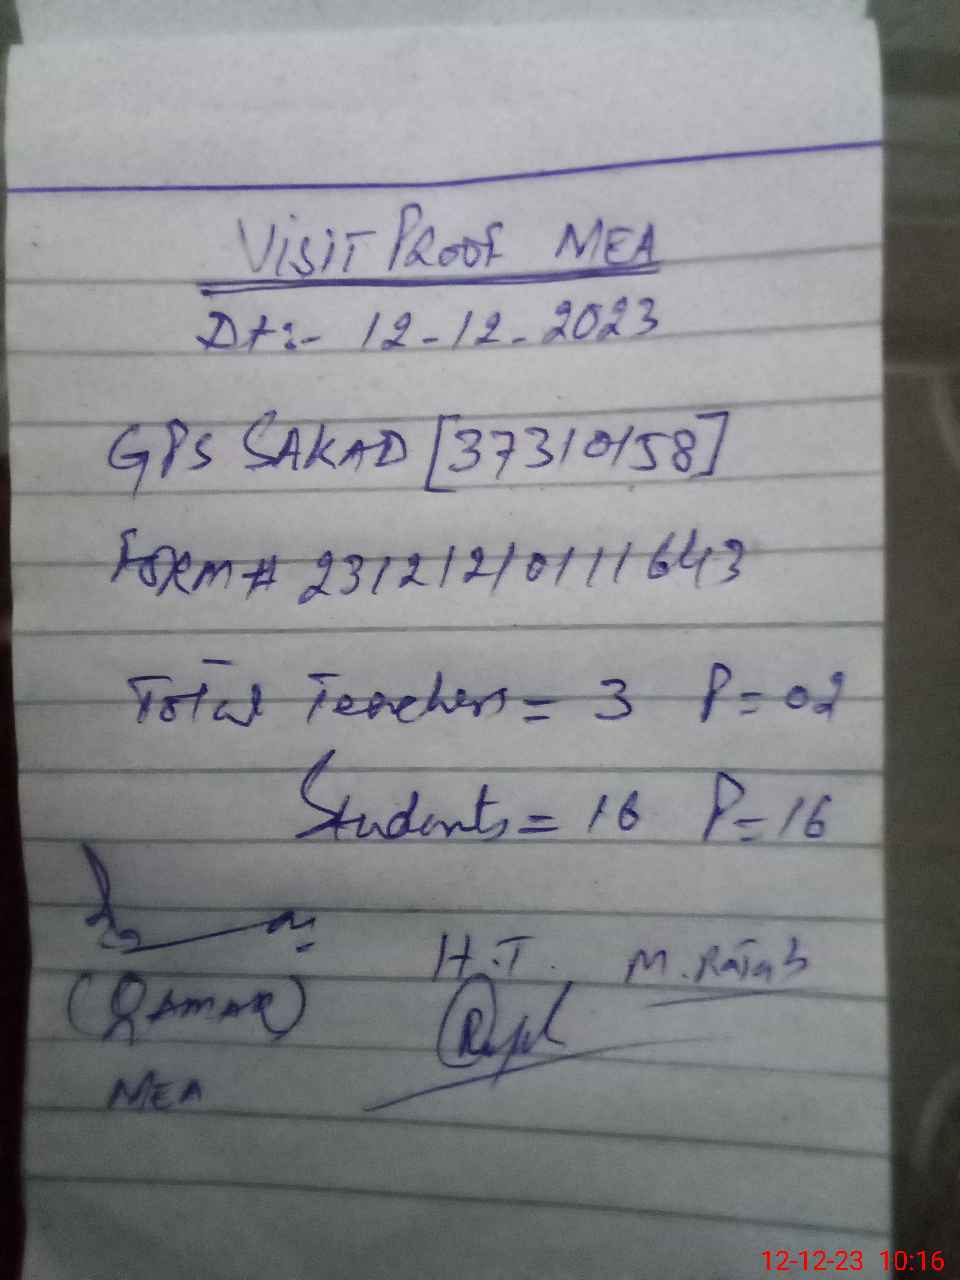 VISIT PROOF MEA
Dt:- 12-12-2023
GPS SAKAD [37310158]
Form # 23121210111643
Total Teachers = 3 P = 02
Students = 16 P = 16
H.T. M. Rajab
(QAMAR)
MEA
12-12-23 10:16